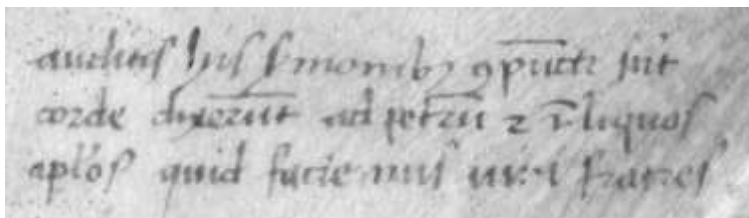 auditis hys ẜmonibꝫ ꝯpūcti sūt
corde dyxerūt ad petrū ⁊ r̄liquos
apłos quid faciemus uiri fratres